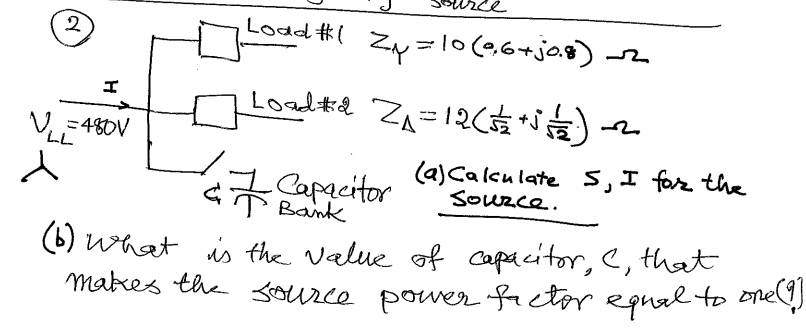 source
② Load #1 Z_Y = 10 (0.6 + j0.8) Ω
I
Load #2 Z_Δ = 12 (1/√2 + j 1/√2) Ω
V_LL = 480V
C Capacitor
Bank
(a) Calculate S, I for the
source.
(b) What is the value of capacitor, C, that
makes the source power factor equal to one(?)